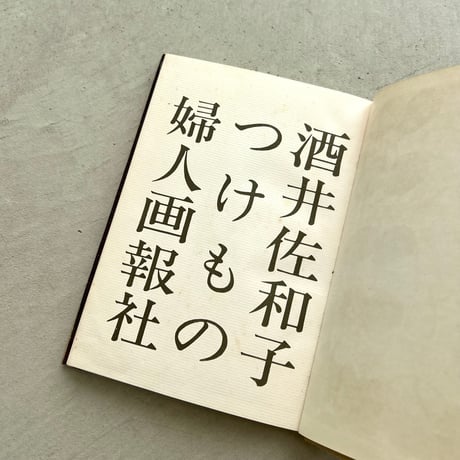 酒井佐和子
つけもの
婦人画報社